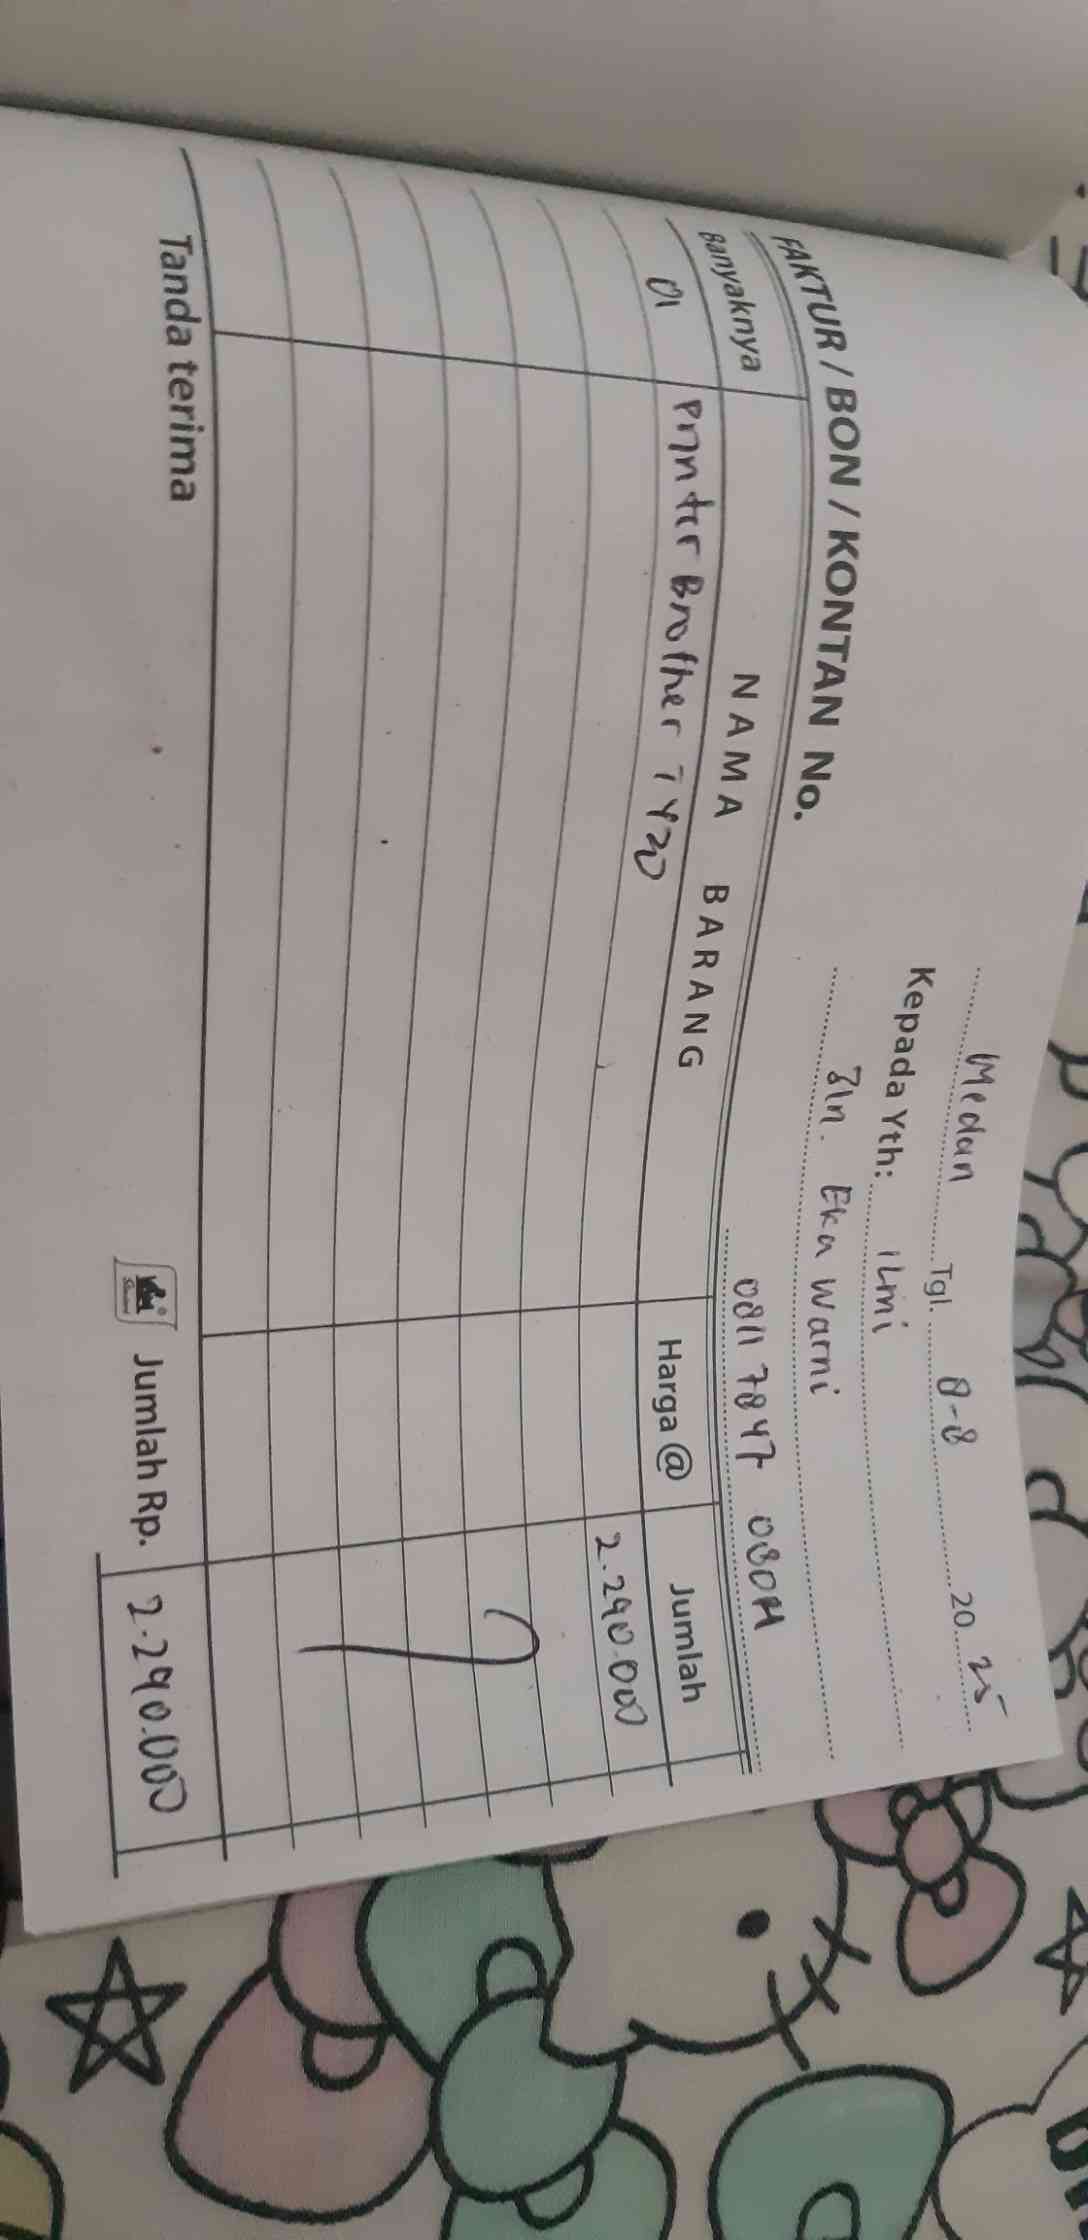 Medan Tgl. 8-8 20 25
Kepada Yth: ilmi
Jln. Eka Warni
0811 7847 0804
FAKTUR / BON / KONTAN No.
Banyaknya NAMA BARANG Harga @ Jumlah
01 Printer Brother T420 2.290.000
Tanda terima Jumlah Rp. 2.290.000